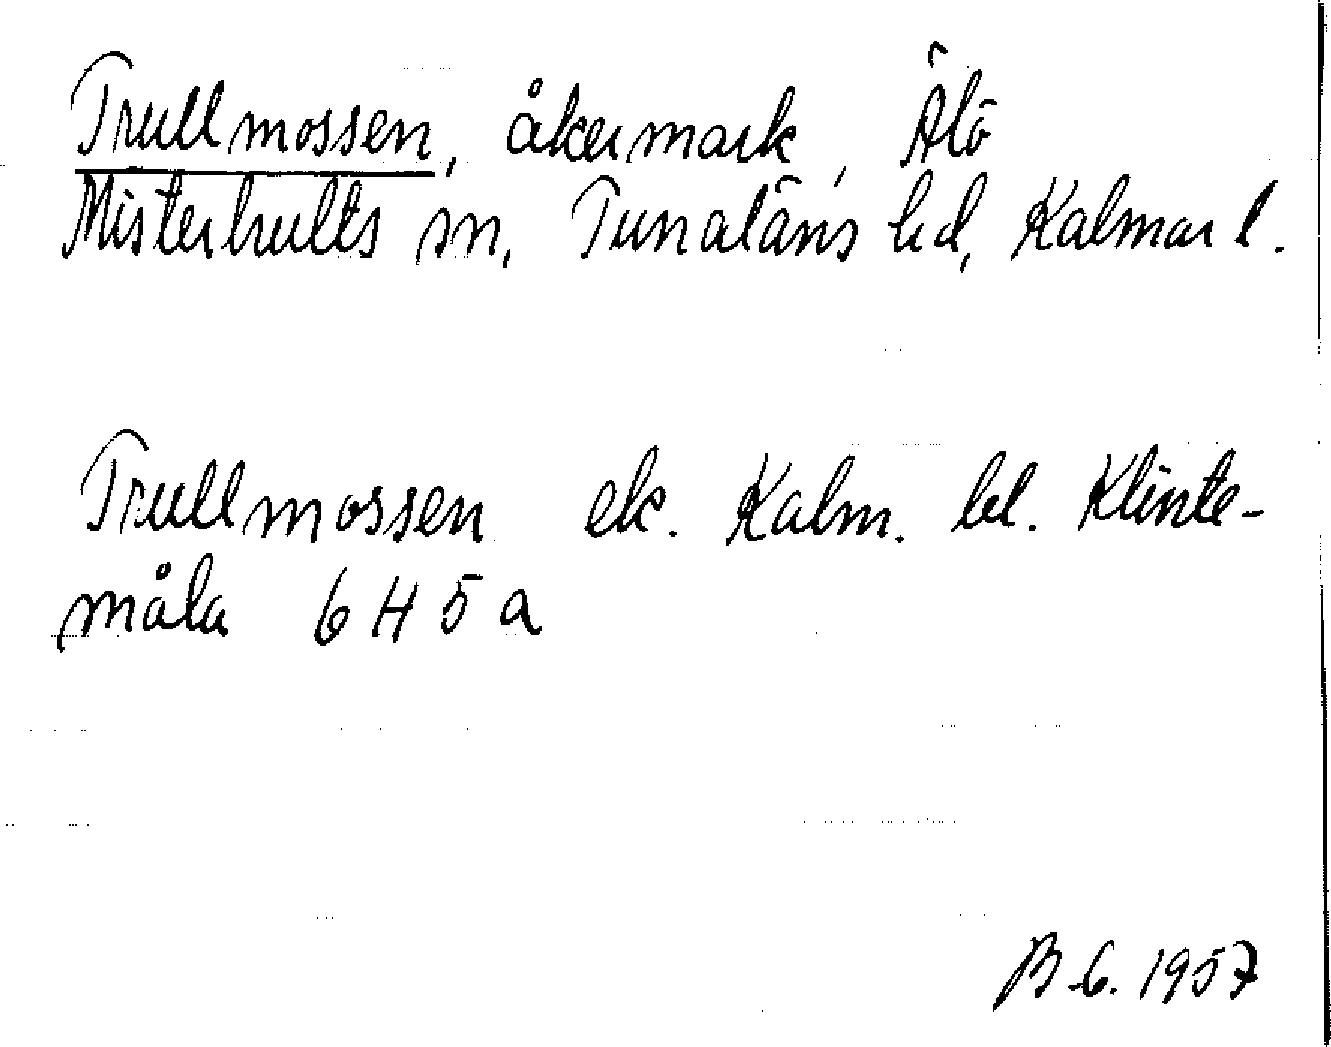 Trullmossen, åkermark, Älö
Misterhults sn, Tunaläns hd, Kalmar l.
Trullmossen ek. Kalm. bl. Klinte-
måla 6 H 5 a
B.G. 1957